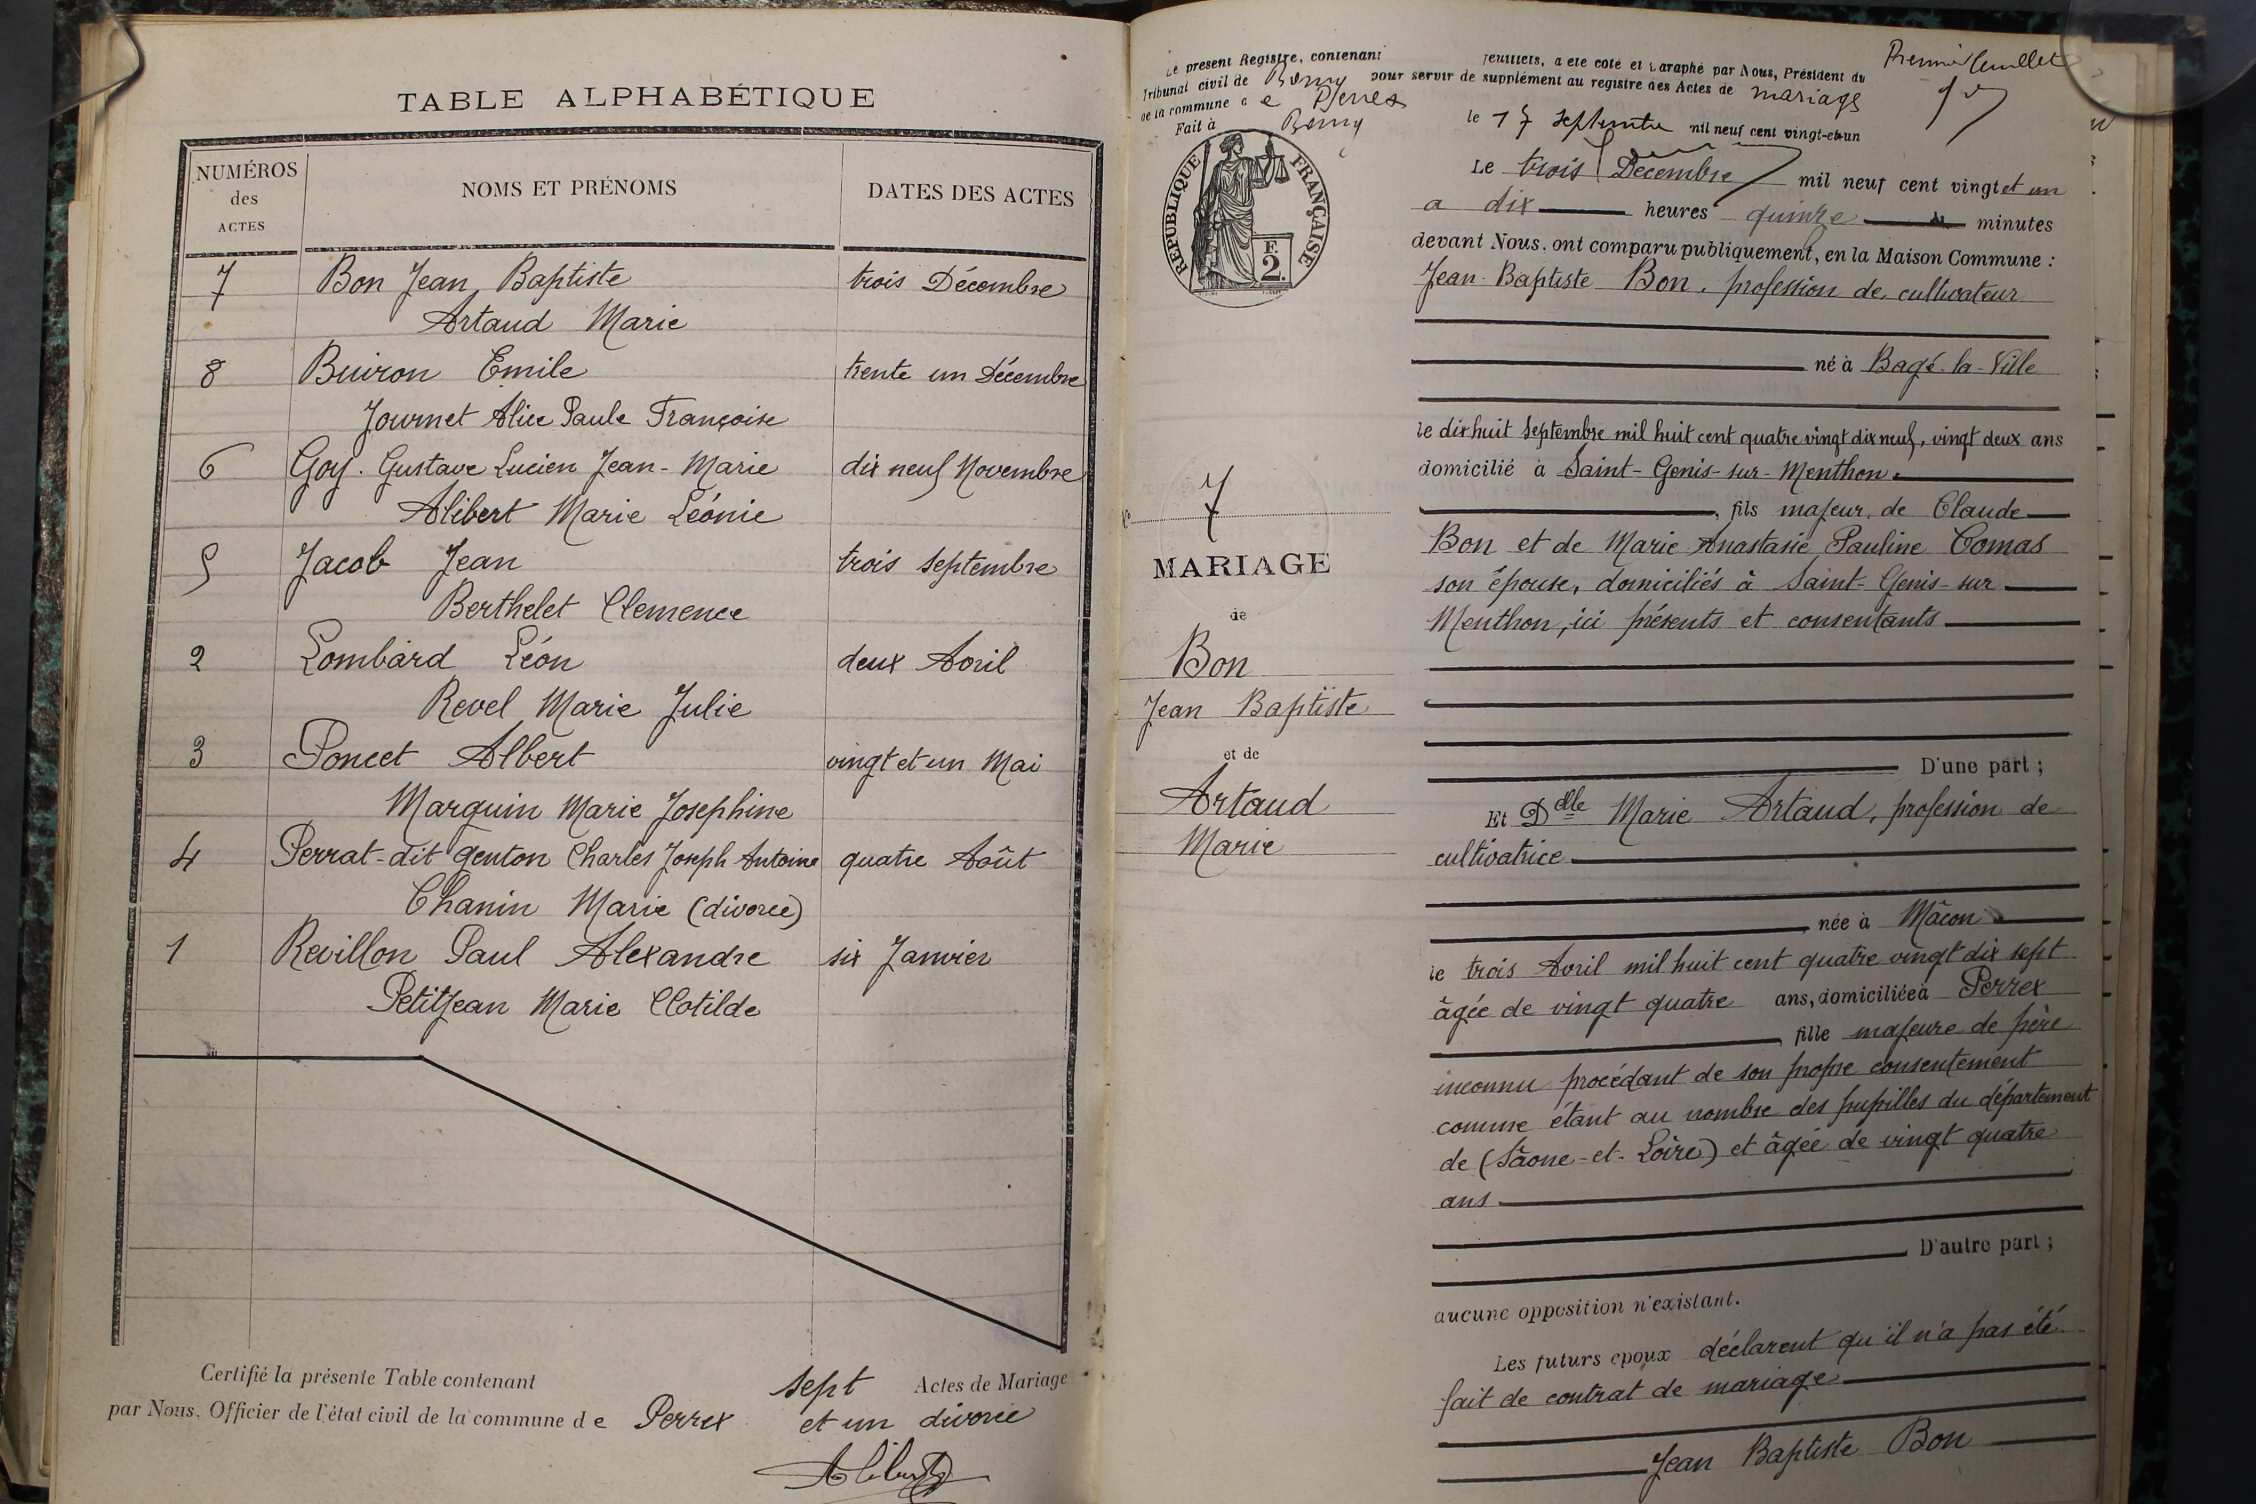 TABLE ALPHABÉTIQUE
NUMÉROS
des
ACTES
NOMS ET PRÉNOMS
DATES DES ACTES
7 Bon Jean Baptiste trois Décembre
Artaud Marie
8 Buiron Emile trente un Décembre
Journet Alice Paule Françoise
6 Goy. Gustave Lucien Jean-Marie dix neuf Novembre
Alibert Marie Léonie
5 Jacob Jean trois septembre
Berthelet Clemence
2 Lombard Léon deux Avril
Revel Marie Julie
3 Poncet Albert vingt et un Mai
Marguin Marie Josephine
4 Perrat-dit Genton Charles Joseph Antoine quatre Août
Chanin Marie (divorce)
1 Revillon Paul Alexandre six Janvier
Petitjean Marie Clotilde
Certifié la présente Table contenant sept Actes de Mariage
par Nous, Officier de l'état civil de la commune de Perrex et un divorce
Alibert
Le présent Registre, contenant feuillets, a été coté et paraphé par Nous, Président du
Tribunal civil de Bourg pour servir de supplément au registre des Actes de mariage
de la commune de Perrex
Fait à Bourg le 17 septembre mil neuf cent vingt-et-un
Premier feuillet
RÉPUBLIQUE FRANÇAISE
F.
2.
7
MARIAGE
de
Bon
Jean Baptiste
et de
Artaud
Marie
Le trois Décembre mil neuf cent vingt et un
a dix heures quinze minutes
devant Nous, ont comparu publiquement, en la Maison Commune :
Jean-Baptiste Bon, profession de cultivateur
né à Bagé-la-Ville
le dix huit Septembre mil huit cent quatre vingt dix neuf, vingt deux ans
domicilié à Saint-Genis-sur-Menthon
, fils majeur de Claude
Bon et de Marie Anastasie Pauline Comas
son épouse, domiciliés à Saint-Genis-sur
Menthon, ici présents et consentants
D'une part ;
Et Dlle Marie Artaud, profession de
cultivatrice
, née à Mâcon
le trois Avril mil huit cent quatre vingt dix sept
âgée de vingt quatre ans, domiciliée à Perrex
, fille majeure de père
inconnu procédant de son propre consentement
comme étant au nombre des pupilles du département
de (Sâone-et-Loire) et âgée de vingt quatre
ans
D'autre part ;
aucune opposition n'existant.
Les futurs époux déclarent qu'il n'a pas été
fait de contrat de mariage
Jean Baptiste Bon